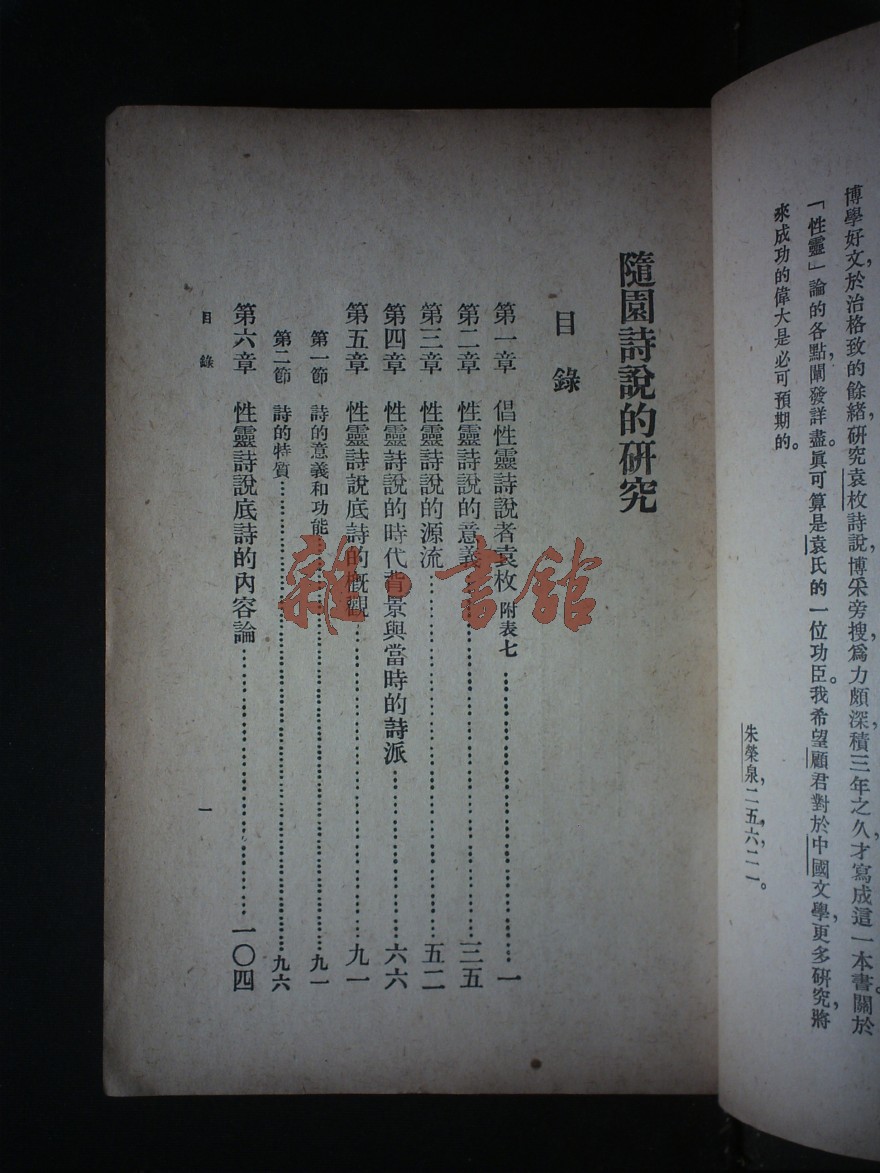 博學好文於治格致的餘緒，研究袁枚詩說，博采旁搜，爲力頗深，積三年之久，才寫成這一本書。關於
「性靈」論的各點，闡發詳盡。眞可算是袁氏的一位功臣。我希望顧君對於中國文學，更多研究，將
來成功的偉大是必可預期的。
朱榮泉，二五，六，二一。
隨園詩說的研究
目錄
第一章 倡性靈詩說者袁枚 附表七……一
第二章 性靈詩說的意義……三五
第三章 性靈詩說的源流……五二
第四章 性靈詩說的時代背景與當時的詩派……六六
第五章 性靈詩說底詩的槪觀……九一
第一節 詩的意義和功能……九一
第二節 詩的特質……九六
第六章 性靈詩說底詩的內容論……一〇四
目錄
一
雜·書館